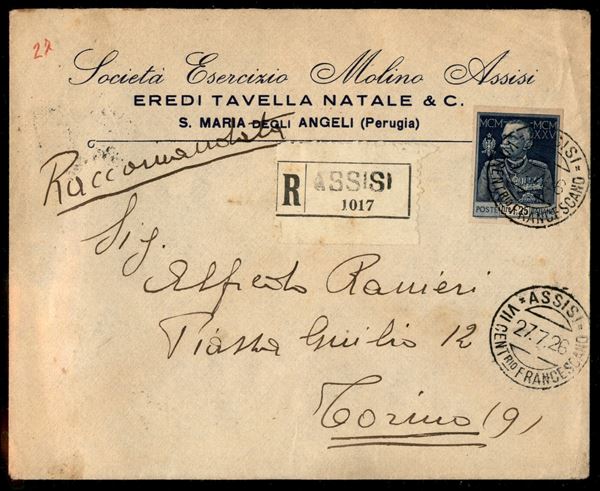 22
Società Esercizio Molino Assisi
EREDI TAVELLA NATALE & C.
S. MARIA DEGLI ANGELI (Perugia)
Raccomandata
R ASSISI
1017
MCM MCM
XXV
POSTE
ASSISI
FRANCESCANO
Sig.
Alfredo Ranieri
Piazza Giulio 12
Torino (9)
ASSISI
27.7.26
VII CENTrio FRANCESCANO